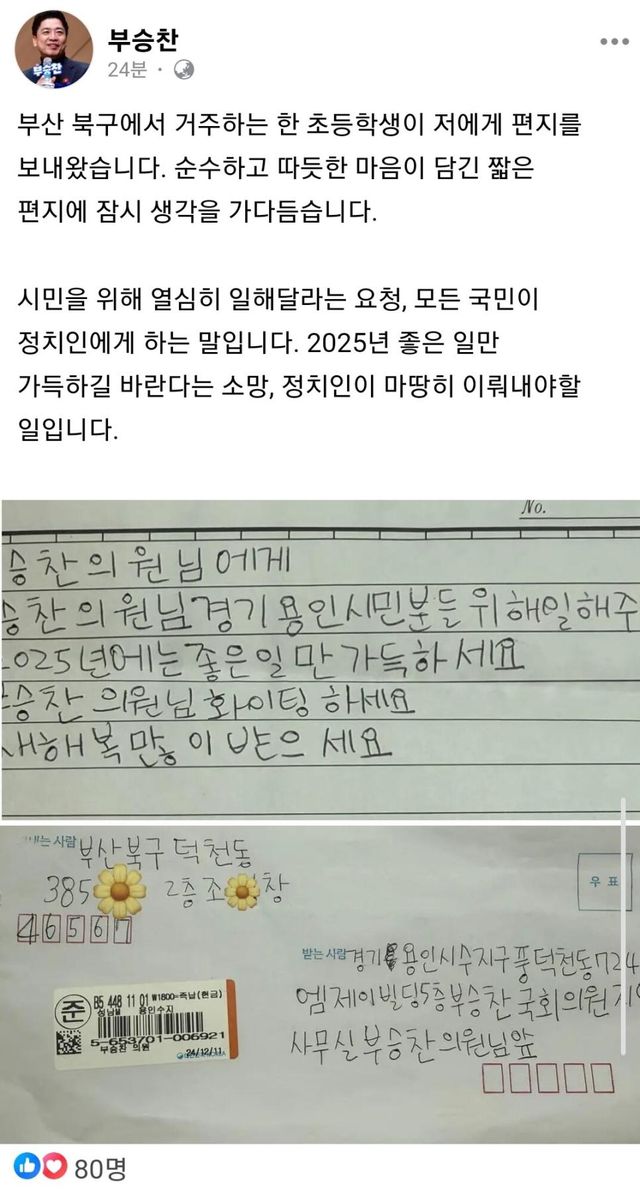 부승찬
24분
부산 북구에서 거주하는 한 초등학생이 저에게 편지를
보내왔습니다. 순수하고 따듯한 마음이 담긴 짧은
편지에 잠시 생각을 가다듬습니다.
시민을 위해 열심히 일해달라는 요청, 모든 국민이
정치인에게 하는 말입니다. 2025년 좋은 일만
가득하길 바란다는 소망, 정치인이 마땅히 이뤄내야할
일입니다.
No.
승찬의원님에게
승찬의원님경기용인시민분들위해일해주
2025년에는좋은일만가득하세요
승찬 의원님화이팅하세요
새해복많이받으세요
내는 사람 부산북구덕천동
385 2층조 창
46567
우표
받는 사람 경기 용인시수지구풍덕천동724
엠제이빌딩5층부승찬국회의원지
사무실부승찬의원님앞
준
B5 448 11 01 ₩1800-즉납(현금)
성남 용인수지
5-653701-006921
부승찬 의원
24/12/11
80명